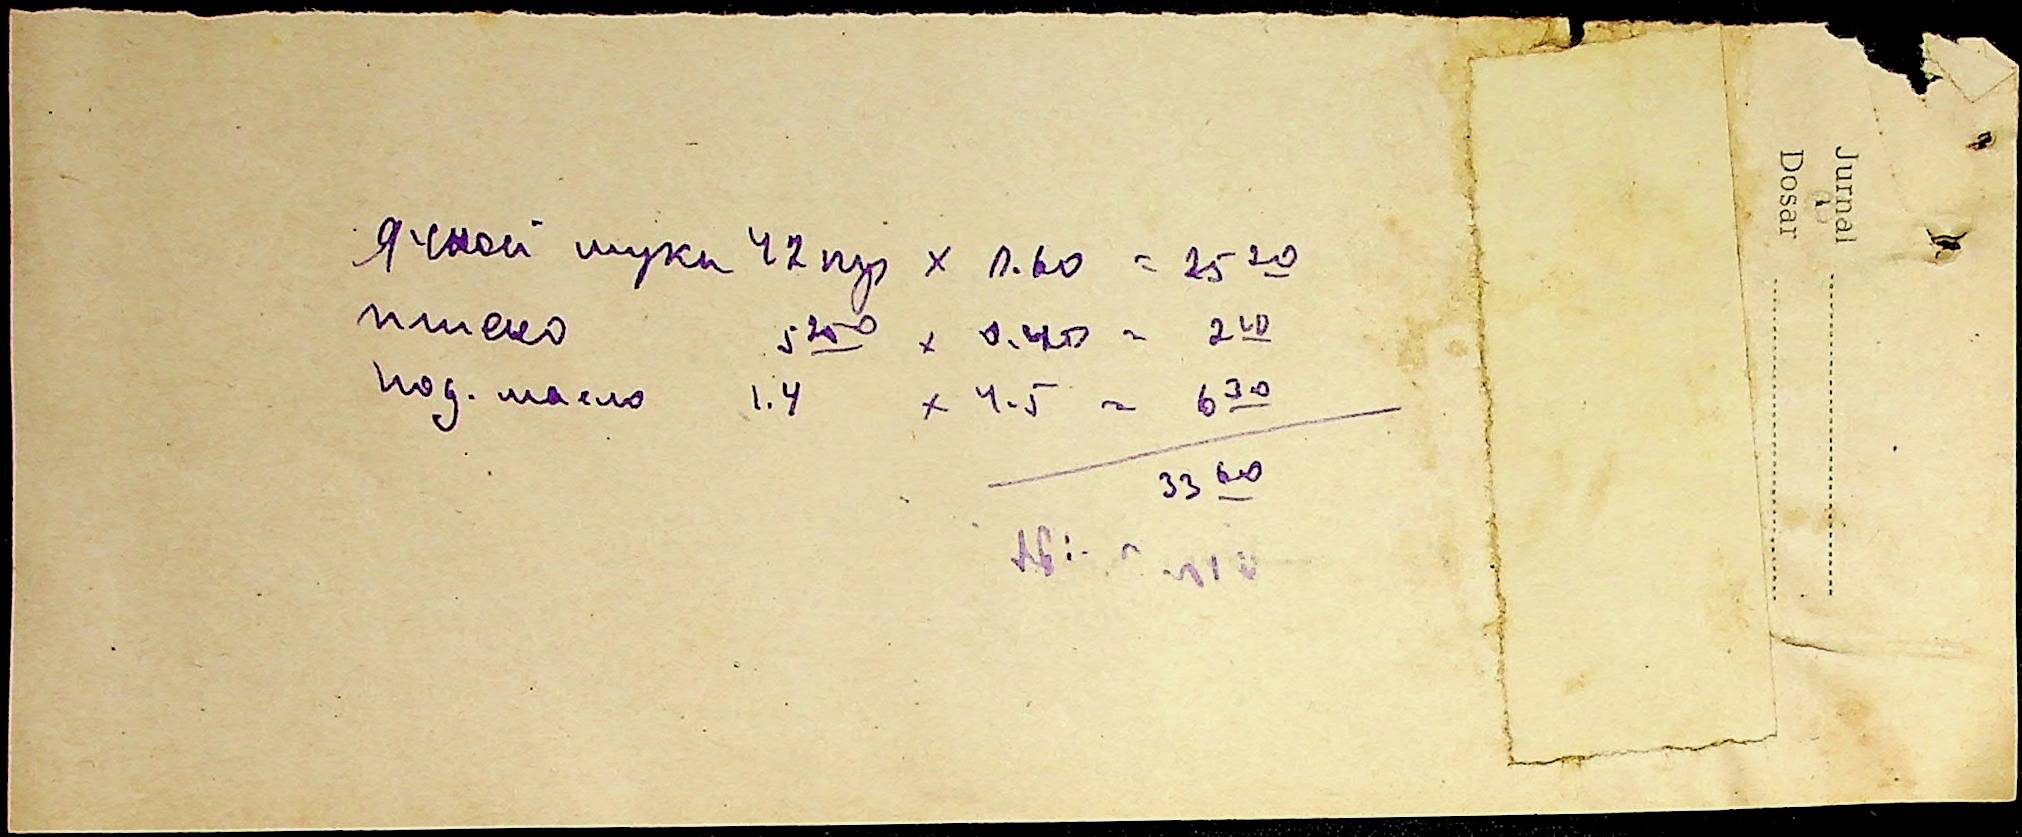 Ячной муки 42 пуд × 0.60 = 25 20
пшено 5 250 × 0.40 = 2 10
под. масло 1.4 × 4.5 = 6 30
33 60
Jurnal
Dosar